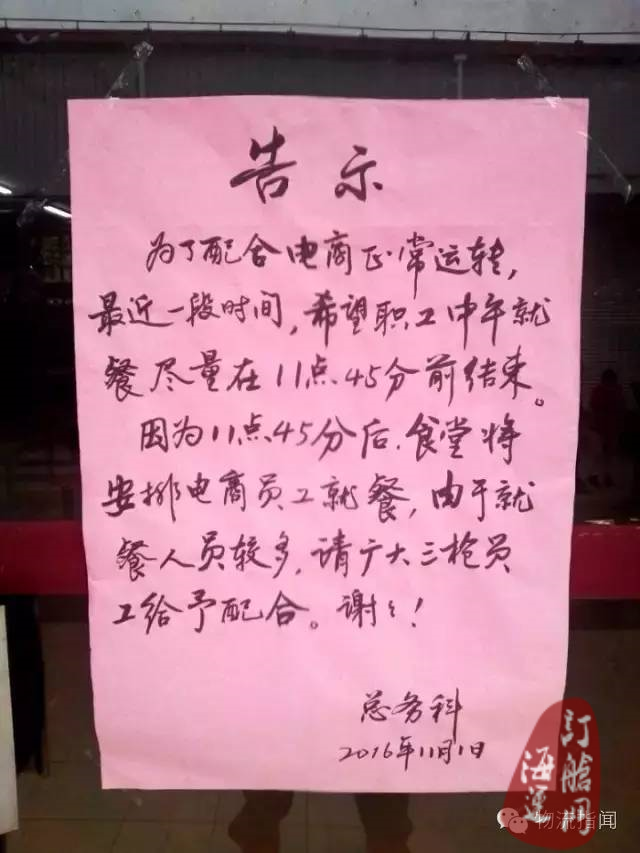 告示
为了配合电商正常运转，
最近一段时间，希望职工中午就
餐尽量在11点45分前结束。
因为11点45分后，食堂将
安排电商员工就餐，由于就
餐人员较多，请广大三枪员
工给予配合。谢々！
总务科
2016年11月1日
订舱网
海运
物流指闻